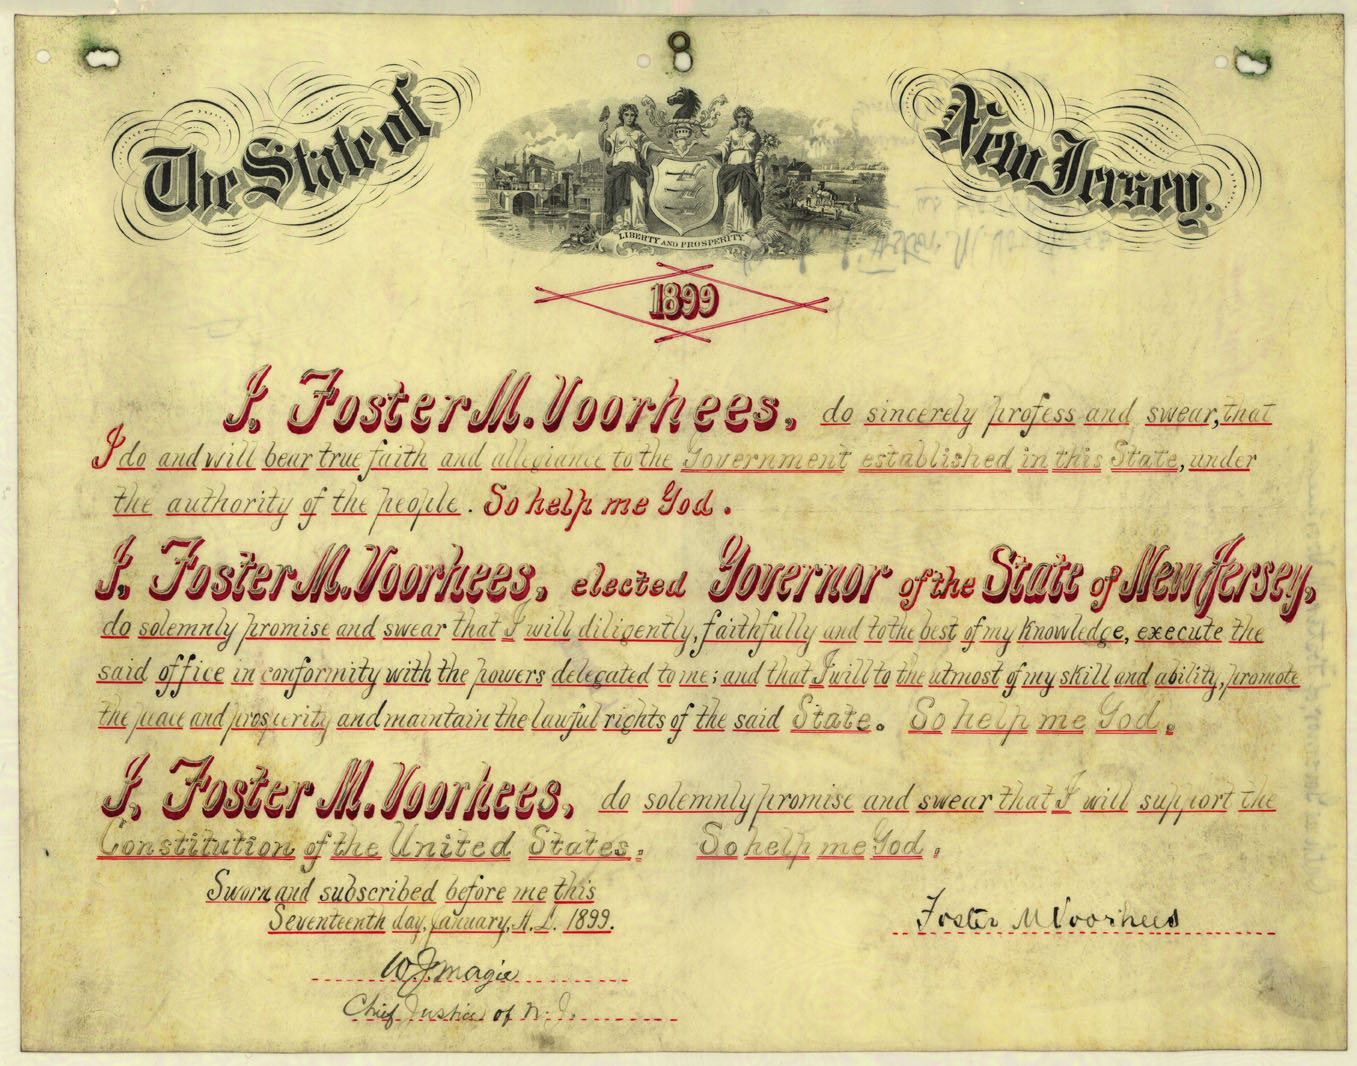 The State of New Jersey.
LIBERTY AND PROSPERITY
1899
I, Foster M. Voorhees, do sincerely profess and swear, that
I do and will bear true faith and allegiance to the Government established in this State, under
the authority of the people. So help me God.
I, Foster M. Voorhees, elected Governor of the State of New Jersey,
do solemnly promise and swear that I will diligently, faithfully and to the best of my knowledge, execute the
said office in conformity with the powers delegated to me; and that I will to the utmost of my skill and ability, promote
the peace and prosperity and maintain the lawful rights of the said State. So help me God.
I, Foster M. Voorhees, do solemnly promise and swear that I will support the
Constitution of the United States. So help me God.
Sworn and subscribed before me this
Seventeenth day, January, A.D. 1899.
Foster M Voorhees
W J Magie
Chief Justice of N. J.